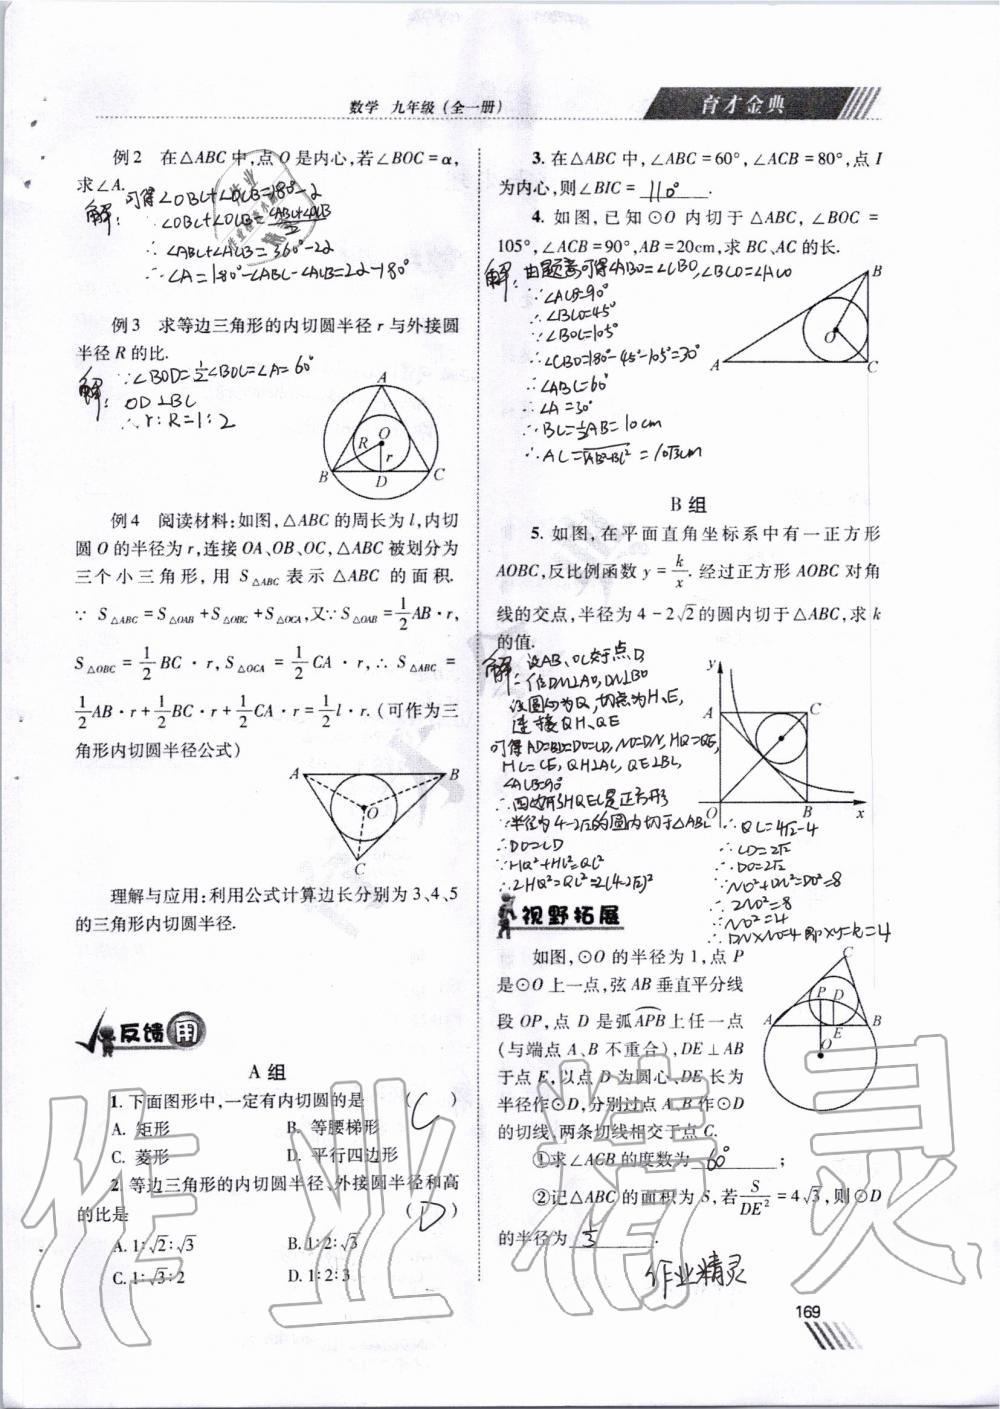 数学 九年级(全一册)
育才金典
例2 在△ABC中,点O是内心,若∠BOC=α,
求∠A.
解: 可得∠OBC+∠OCB=180°-α
∴∠ABC+∠ACB=360°-2α
∴∠A=180°-∠ABC-∠ACB=2α-180°
例3 求等边三角形的内切圆半径r与外接圆
半径R的比.
解: ∵∠BOD=½∠BOC=∠A=60°
OD⊥BC
∴r:R=1:2
A
R
O
r
B
D
C
例4 阅读材料:如图,△ABC的周长为l,内切
圆O的半径为r,连接OA、OB、OC,△ABC被划分为
三个小三角形,用S△ABC表示△ABC的面积.
∵ S△ABC=S△OAB+S△OBC+S△OCA,又∵S△OAB=1/2AB·r,
S△OBC=1/2BC·r,S△OCA=1/2CA·r,∴S△ABC=
1/2AB·r+1/2BC·r+1/2CA·r=1/2l·r.(可作为三
角形内切圆半径公式)
A
B
O
C
理解与应用:利用公式计算边长分别为3、4、5
的三角形内切圆半径.
反馈用
A组
1. 下面图形中,一定有内切圆的是 (C)
A. 矩形 B. 等腰梯形
C. 菱形 D. 平行四边形
2. 等边三角形的内切圆半径、外接圆半径和高
的比是 (D)
A. 1∶√2∶√3 B. 1∶2∶√3
C. 1∶√3∶2 D. 1∶2∶3
3. 在△ABC中,∠ABC=60°,∠ACB=80°,点I
为内心,则∠BIC= 110° .
4. 如图,已知⊙O内切于△ABC,∠BOC=
105°,∠ACB=90°,AB=20cm,求BC、AC的长.
解: 由题意可得∠ABO=∠CBO,∠BCO=∠ACO
∵∠ACB=90°
∴∠BCO=45°
∵∠BOC=105°
∴∠CBO=180°-45°-105°=30°
∴∠ABC=60°
∴∠A=30°
∴BC=½AB=10cm
∴AC=√(AB²-BC²)=10√3cm
B
O
A
C
B组
5. 如图,在平面直角坐标系中有一正方形
AOBC,反比例函数y=k/x.经过正方形AOBC对角
线的交点,半径为4-2√2的圆内切于△ABC,求k
的值.
解: 设AB、OC交于点D
作DM⊥AO,DN⊥BO
设圆心为Q,切点为H、E,
连接QH、QE
可得AD=BD=DO=CD,NO=DN,HQ=QE,
HC=CE,QH⊥AC,QE⊥BC,
∠ACB=90°
∴四边形HQEC是正方形
∵半径为4-2√2的圆内切于△ABC
∴DO=CD
∵HQ²+HC²=QC²
∴2HQ²=QC²=2(4-2√2)²
∴QC=4√2-4
∴CD=2√2
∴DO=2√2
∵NO²+DN²=DO²=8
∴2NO²=8
∴NO²=4
∴DN×NO=4 即xy=k=4
y
A
C
O
B
x
视野拓展
如图,⊙O的半径为1,点P
是⊙O上一点,弦AB垂直平分线
段OP,点D是弧APB上任一点
(与端点A、B不重合),DE⊥AB
于点E,以点D为圆心、DE长为
半径作⊙D,分别过点A、B作⊙D
的切线,两条切线相交于点C.
①求∠ACB的度数为 60° ;
②记△ABC的面积为S,若S/DE²=4√3,则⊙D
的半径为 1/3 .
C
P
D
A
E
B
O
作业精灵
169
作业精灵